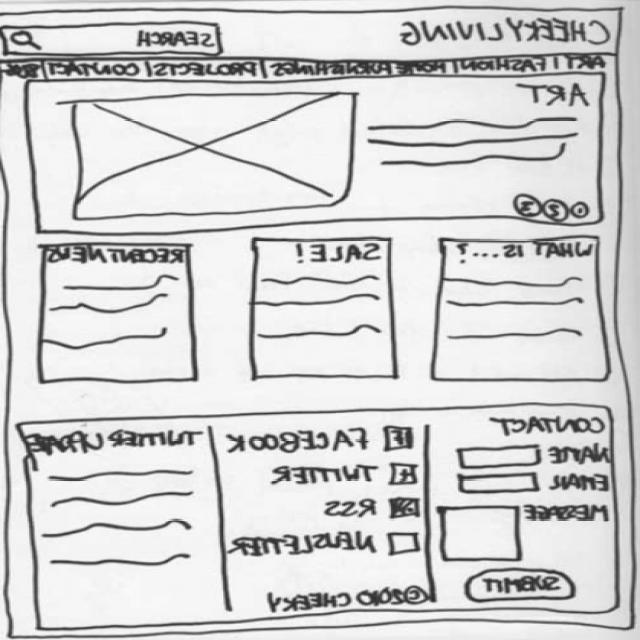 CHEEKYLIVING
SEARCH
ART | FASHION | HOME FURNISHINGS | PROJECTS | CONTACT |
ART
1 2 3
WHAT IS...?
SALE!
RECENT NEWS
CONTACT
NAME
EMAIL
MESSAGE
SUBMIT
FACEBOOK
TWITTER
RSS
NEWSLETTER
©2010 CHEEKY
TWITTER UPDATE